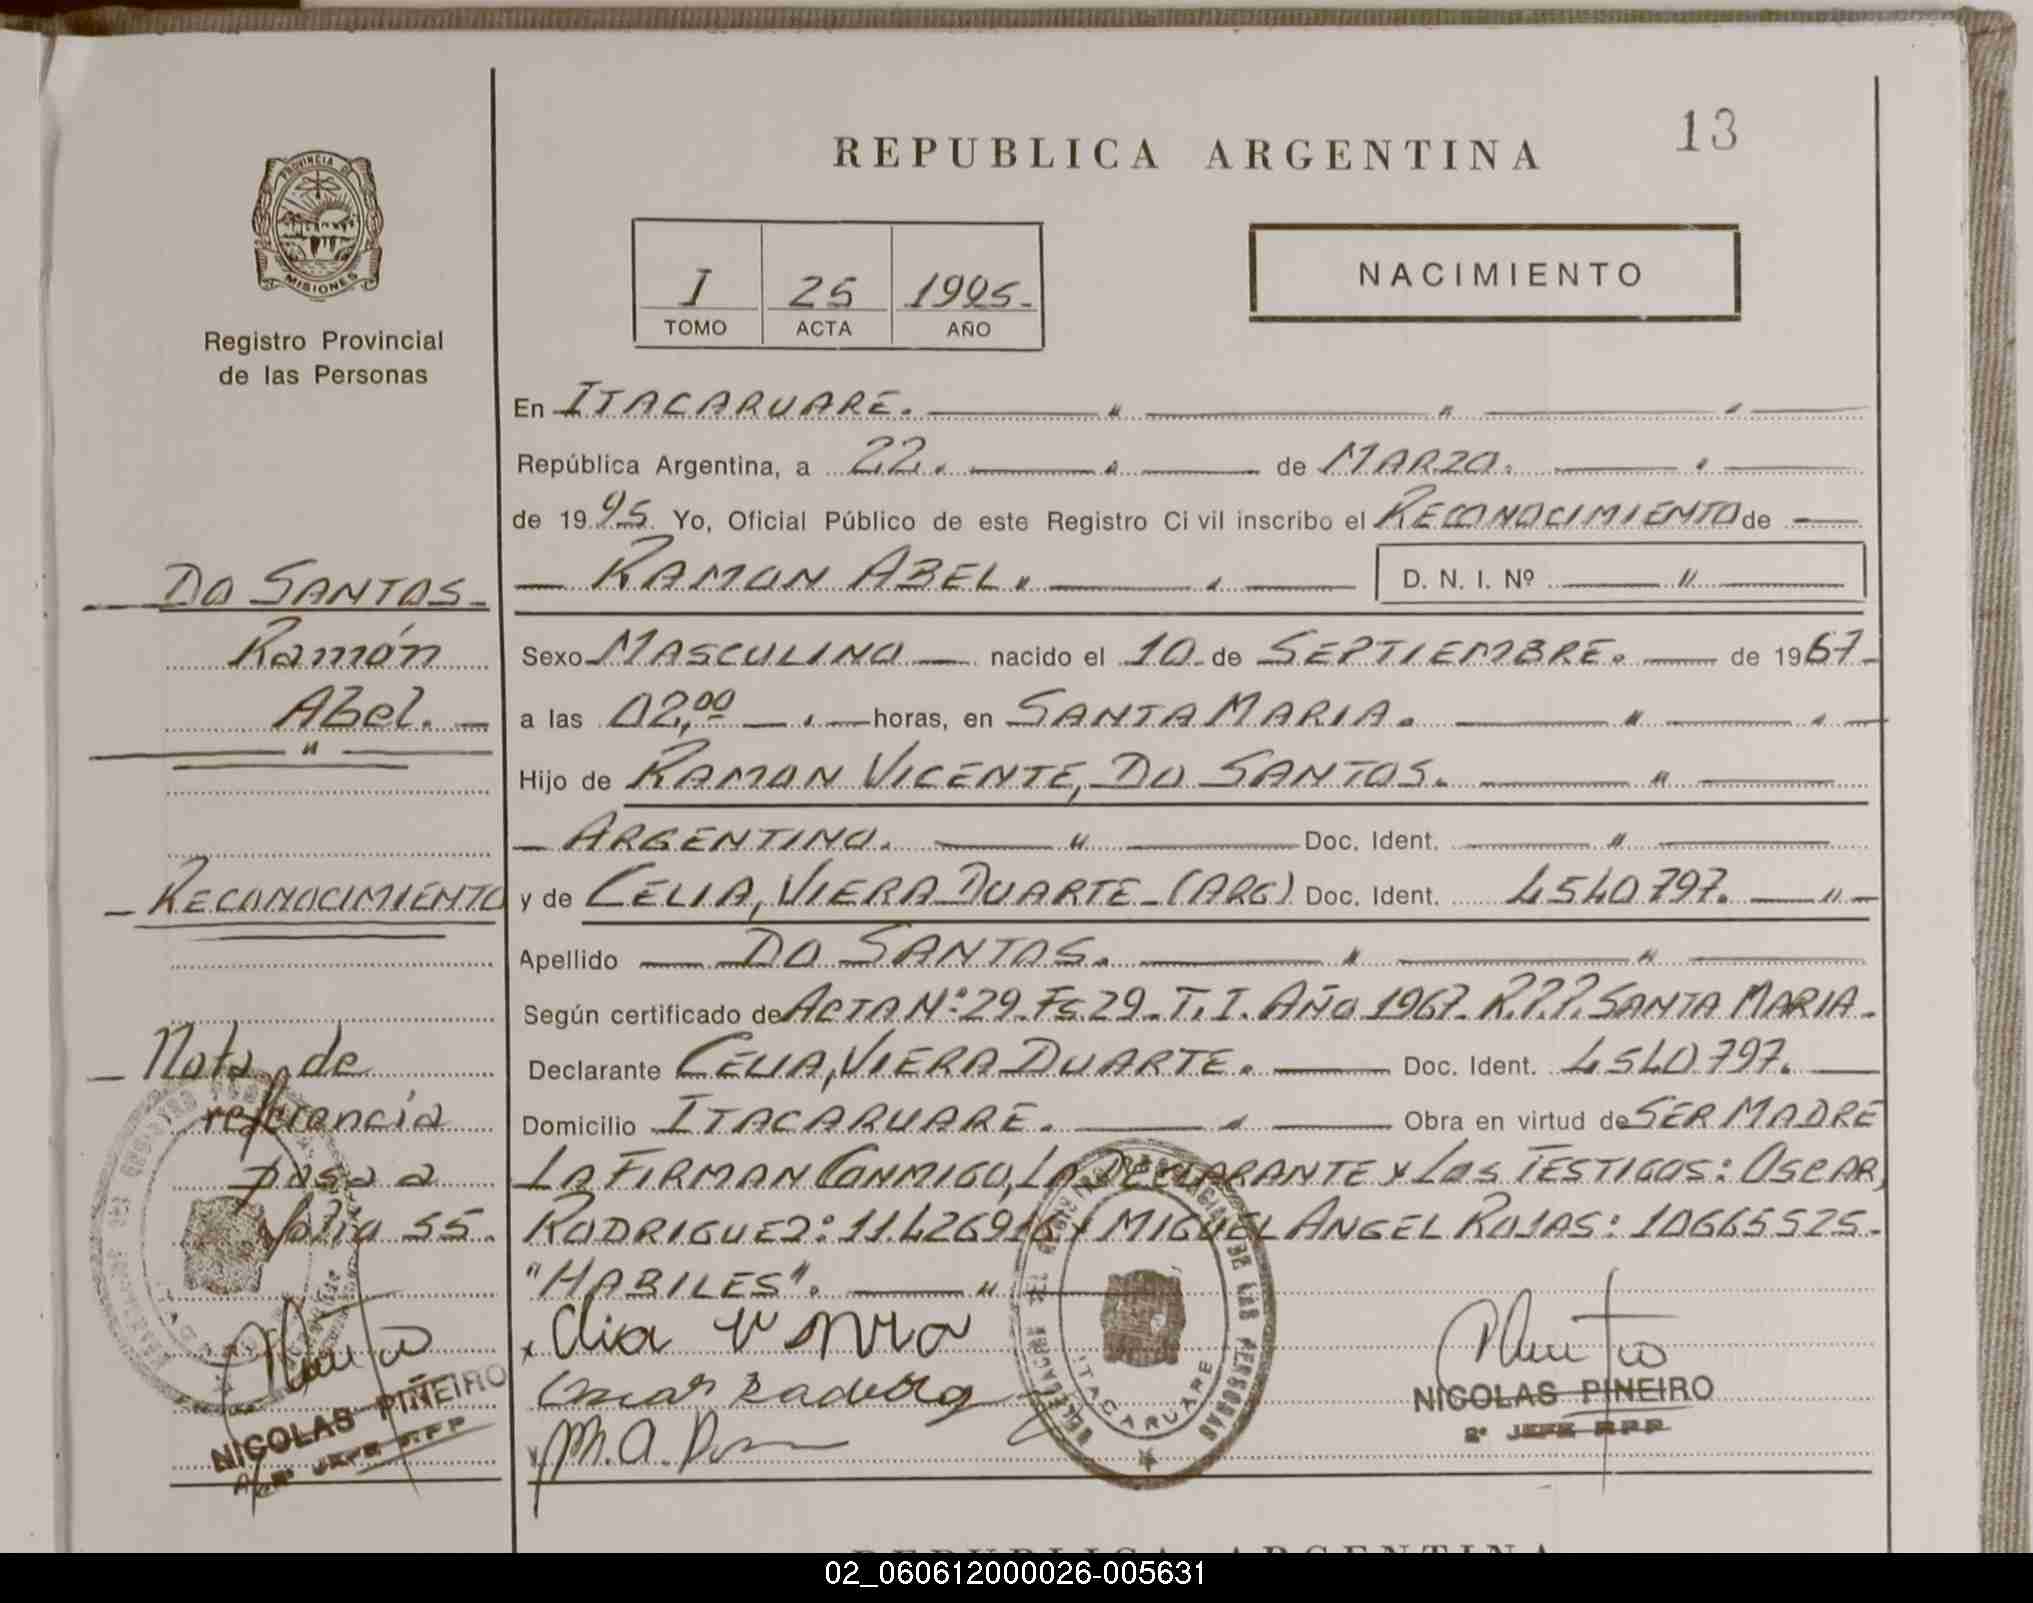 13
REPUBLICA ARGENTINA
PROVINCIA DE
MISIONES
Registro Provincial
de las Personas
I 25 1995.-
TOMO ACTA AÑO
NACIMIENTO
En ITACARUARE.
República Argentina, a 22. de MARZO.
de 1995 Yo, Oficial Público de este Registro Civil inscribo el RECONOCIMIENTO de
RAMON ABEL. D. N. I. Nº
Sexo MASCULINO nacido el 10 de SEPTIEMBRE. de 1967
a las 02,00 horas, en SANTA MARIA.
Hijo de RAMON VICENTE, DO SANTOS.
ARGENTINO. Doc. Ident.
y de CELIA, VIERA DUARTE - (ARG) Doc. Ident. 4540797.
Apellido DO SANTOS.
Según certificado de ACTA Nº 29. Fs 29. T. I. AÑO 1967. R.P.P. SANTA MARIA.
Declarante CELIA, VIERA DUARTE. Doc. Ident. 4540797.
Domicilio ITACARUARE. Obra en virtud de SER MADRE
LA FIRMAN CONMIGO, LA DECLARANTE y LOS TESTIGOS: OSCAR,
RODRIGUEZ: 11.426916 y MIGUEL ANGEL ROJAS: 10665525.
"HABILES".
M. A.
ITACARUARE
NICOLAS PIÑEIRO
2º JEFE R.P.P.
DO SANTOS
Ramón
Abel.
RECONOCIMIENTO
Nota de
referencia
pasa a
folio 55.
NICOLAS PIÑEIRO
JEFE R.P.P.
REPUBLICA ARGENTINA
02_060612000026-005631